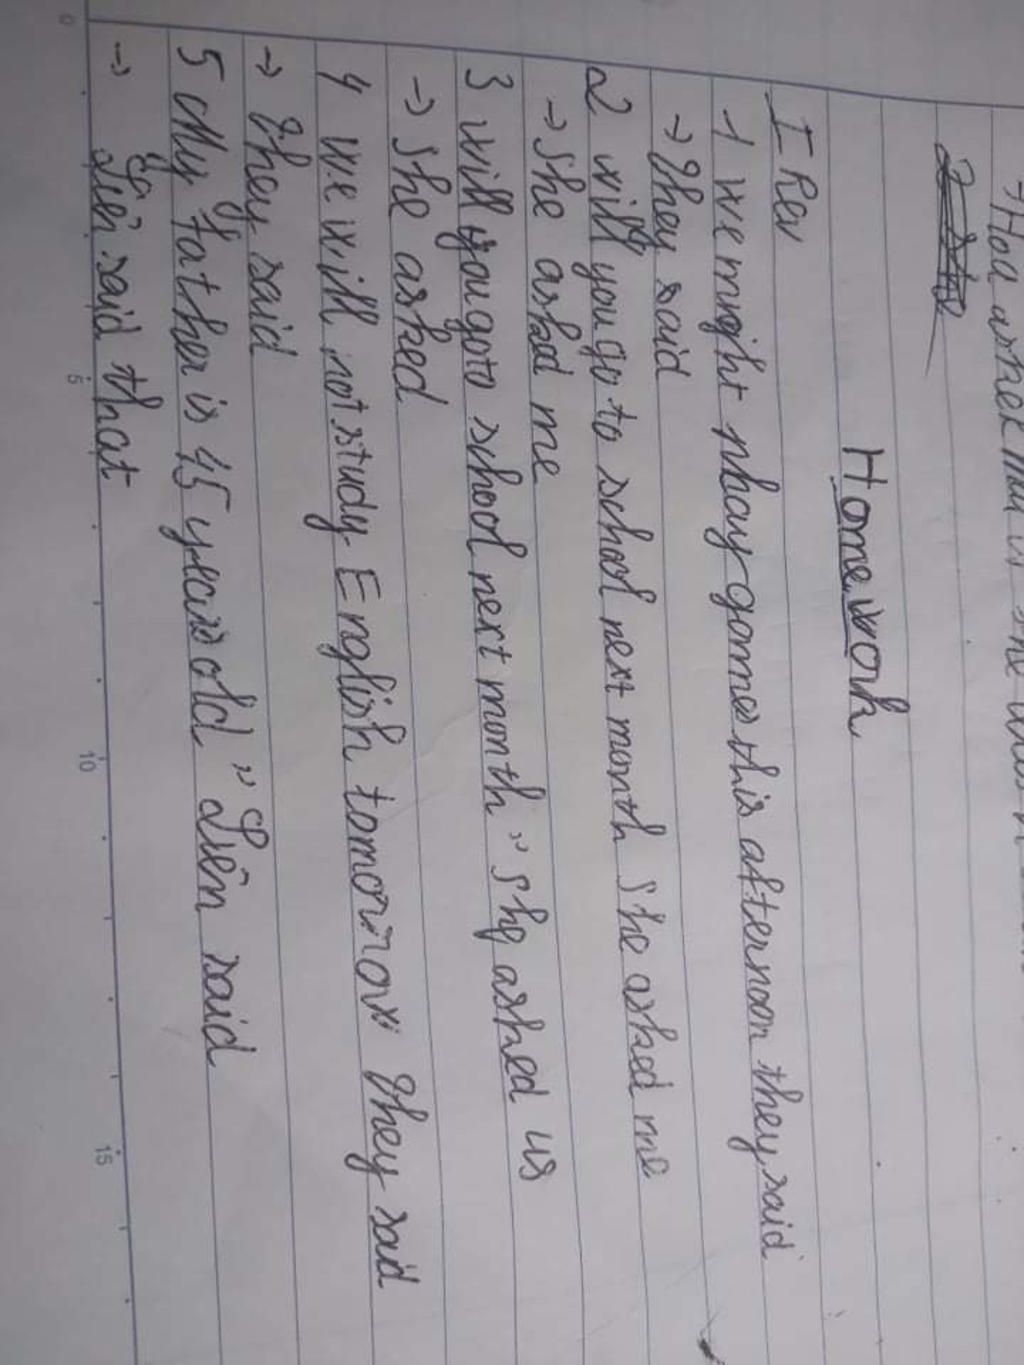 → Hoa asked
Homework
I Rev
1 We might play games this afternoon they said
→ They said
2 will you go to school next month she asked me
→ She asked me
3 will you go to school next month" she asked us
→ She asked
4 We will not study English tomorrow They said
→ They said
5 My father is 45 years old" Liên said
→ Liên said that
0 5 10 15